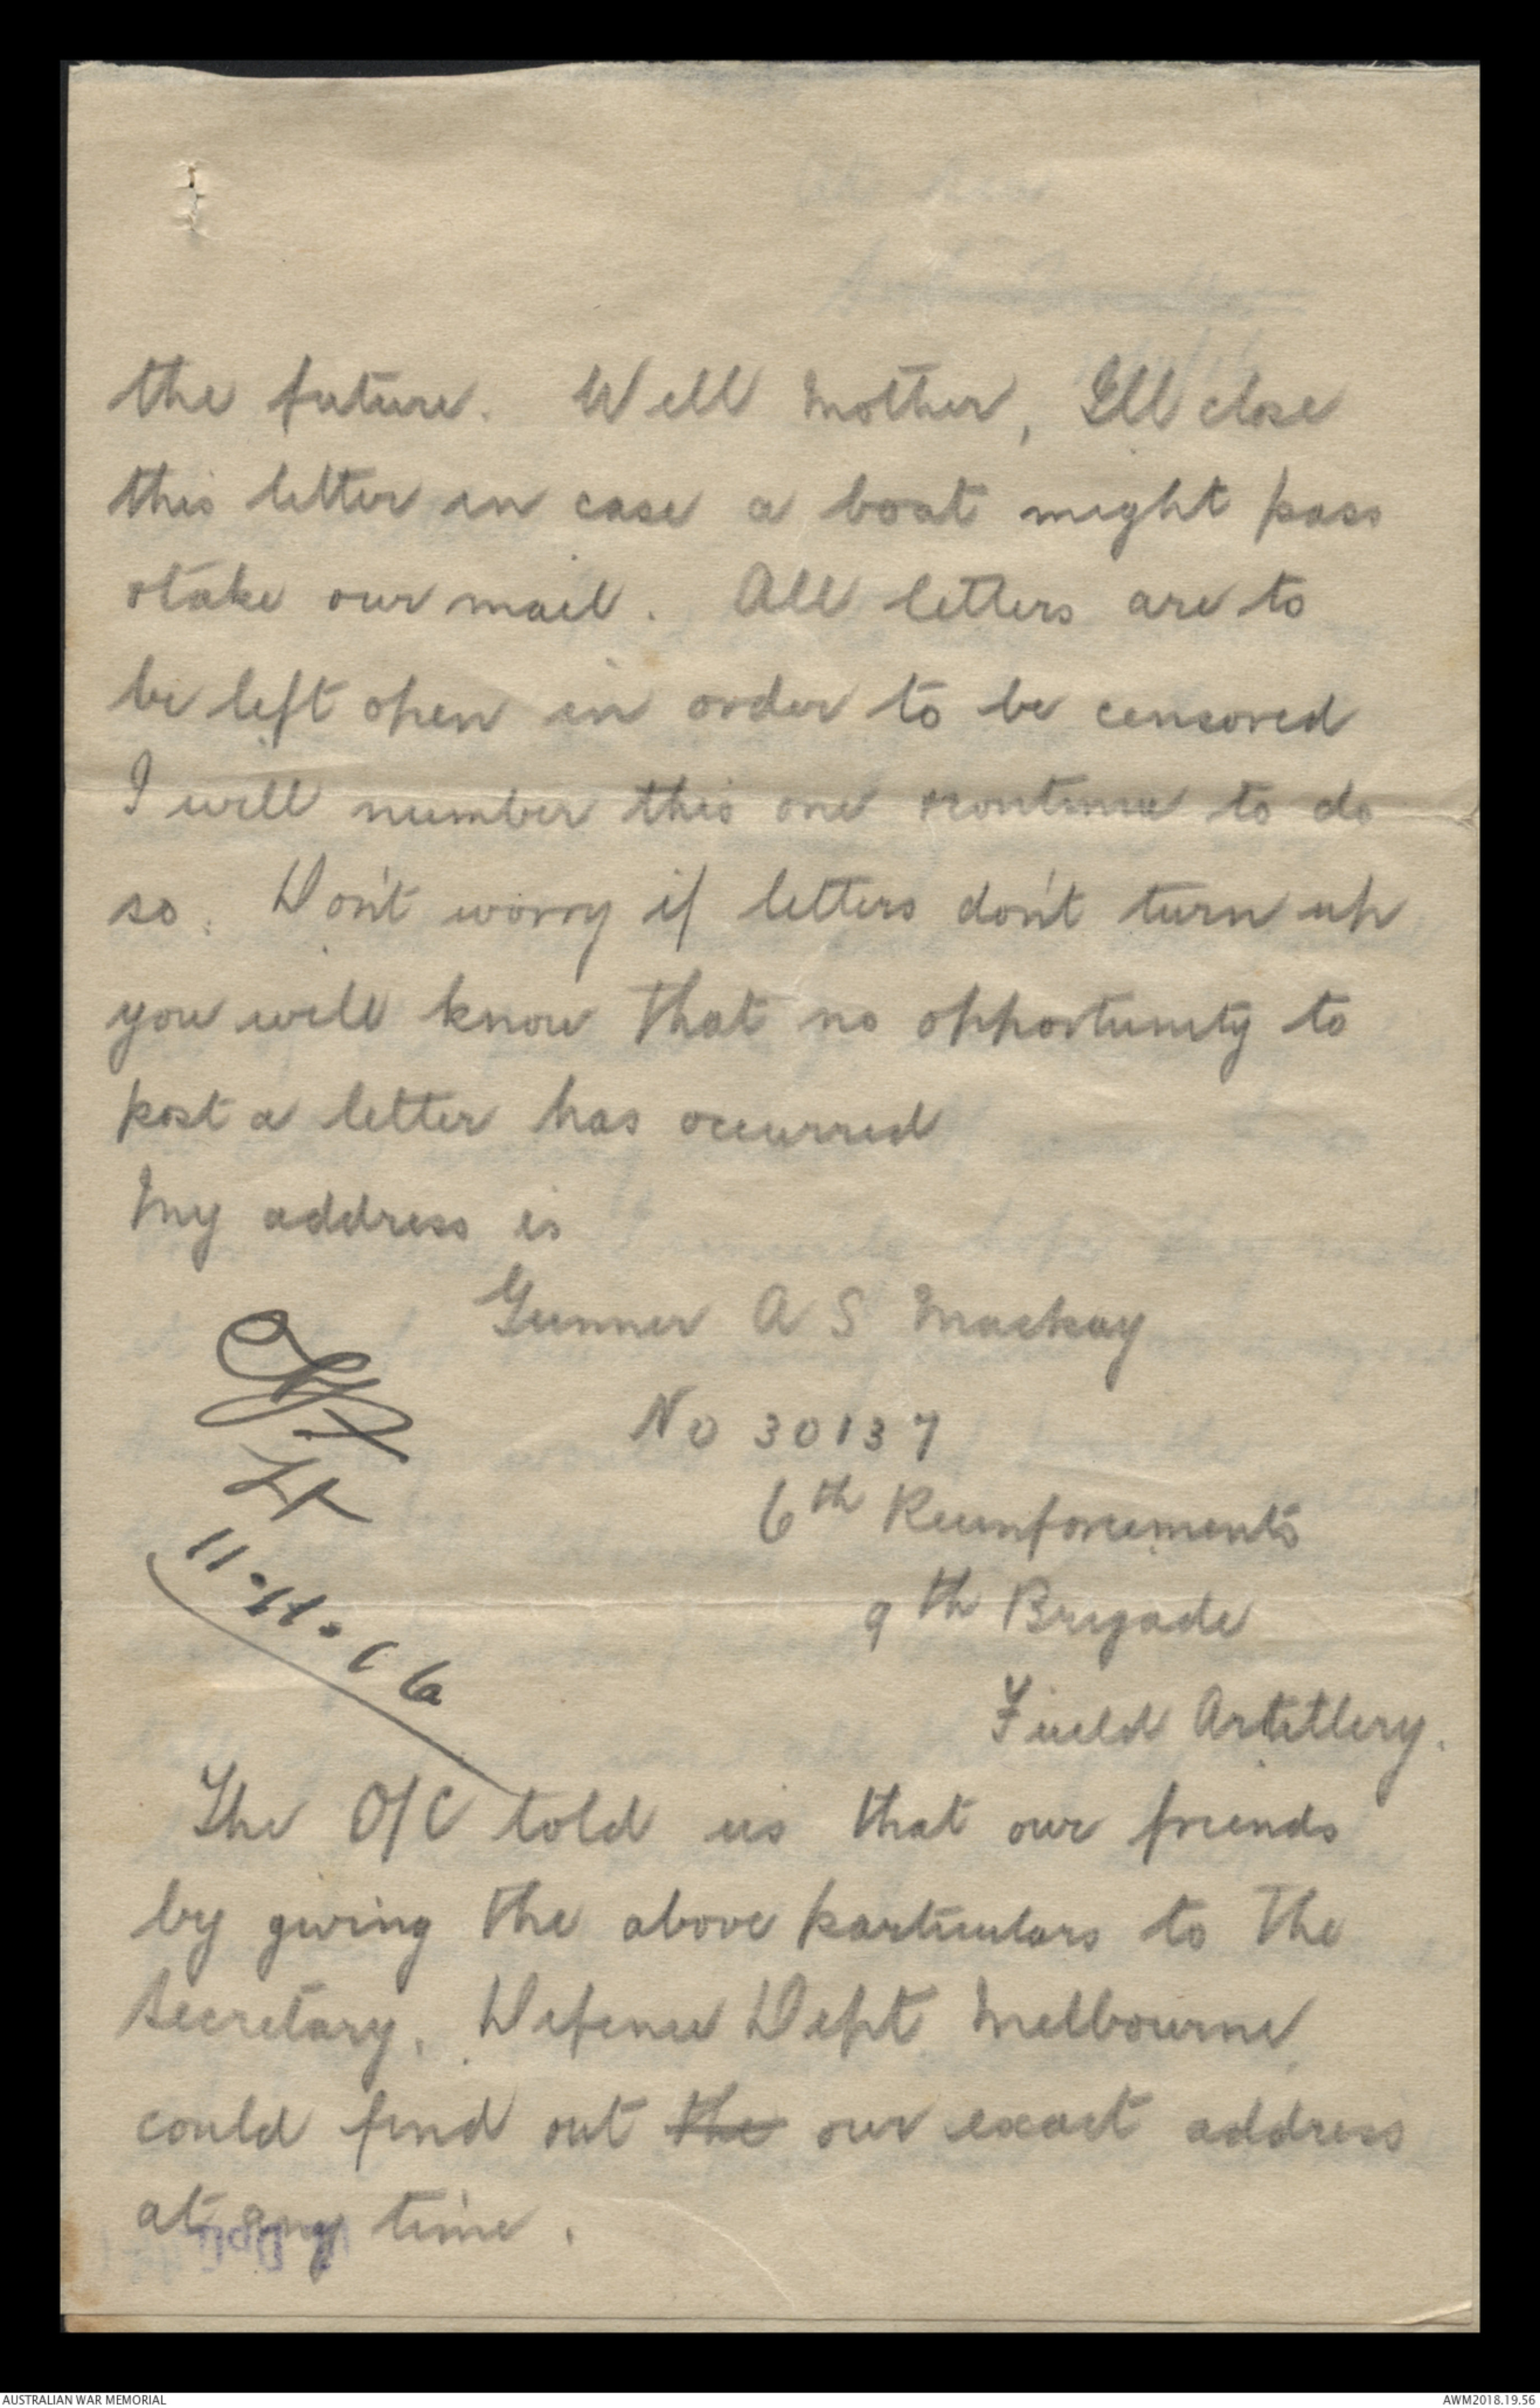 the future. Well Mother, I'll close
this letter in case a boat might pass
& take our mail. All letters are to
be left open in order to be censored
I will number this one & continue to do
so. Don't worry if letters don't turn up
you will know that no opportunity to
post a letter has occurred
My address is
Gunner A S Mackay
No 30137
6th Reinforcements
9th Brigade
Field Artillery.
Lt
11-11-16
The O/C told us that our friends
by giving the above particulars to the
Secretary, Defence Dept Melbourne
could find out the our exact address
at any time.
AUSTRALIAN WAR MEMORIAL
AWM2018.19.56